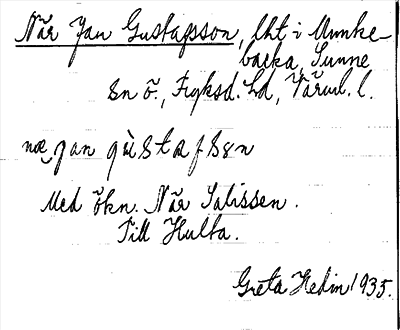 När Jan Gustafsson, lht i Munke-
backa, Sunne
sn ö., Fryksd. hd, Värml. l.
næ jan gùstafsøn
Med ökn. När Salissen.
Till Hulta.
Greta Hedin 1935.